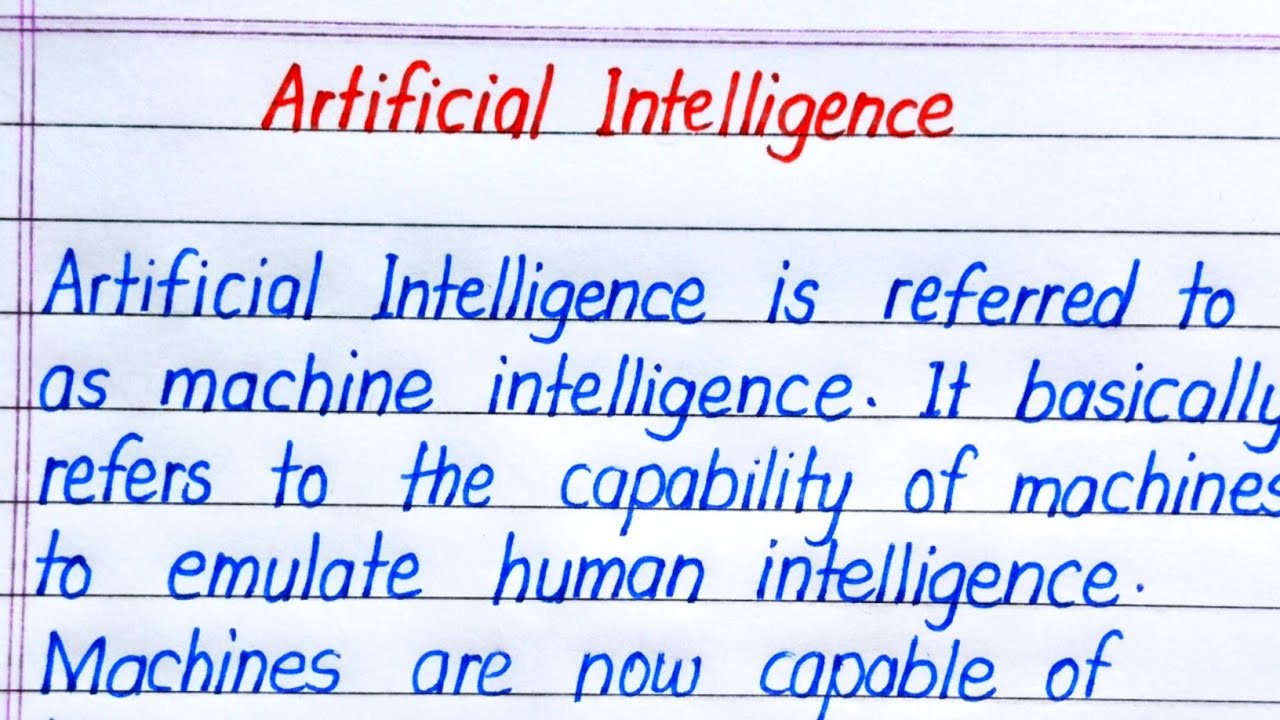 Artificial Intelligence
Artificial Intelligence is referred to
as machine intelligence. It basically
refers to the capability of machines
to emulate human intelligence.
Machines are now capable of